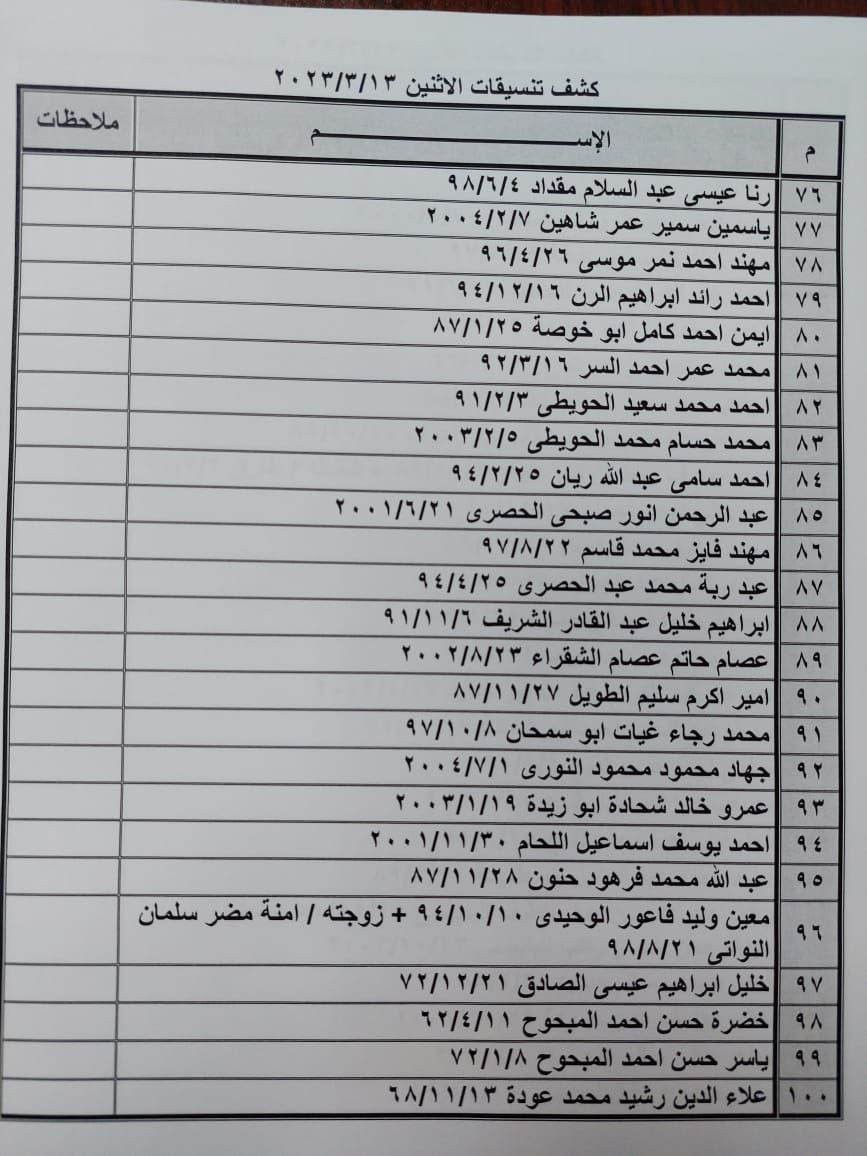 كشف تنسيقات الاثنين ٢٠٢٣/٣/١٣
م الإســـــــــم ملاحظات
٧٦ رنا عيسى عبد السلام مقداد ٩٨/٦/٤
٧٧ ياسمين سمير عمر شاهين ٢٠٠٤/٢/٧
٧٨ مهند احمد نمر موسى ٩٦/٤/٢٦
٧٩ احمد رائد ابراهيم الرن ٩٤/١٢/١٦
٨٠ ايمن احمد كامل ابو خوصة ٨٧/١/٢٥
٨١ محمد عمر احمد السر ٩٢/٣/١٦
٨٢ احمد محمد سعيد الحويطى ٩١/٢/٣
٨٣ محمد حسام محمد الحويطى ٢٠٠٣/٢/٥
٨٤ احمد سامى عبد الله ريان ٩٤/٢/٢٥
٨٥ عبد الرحمن انور صبحى الحصرى ٢٠٠١/٦/٢١
٨٦ مهند فايز محمد قاسم ٩٧/٨/٢٢
٨٧ عبد ربة محمد عبد الحصرى ٩٤/٤/٢٥
٨٨ ابراهيم خليل عبد القادر الشريف ٩١/١١/٦
٨٩ عصام حاتم عصام الشقراء ٢٠٠٢/٨/٢٣
٩٠ امير اكرم سليم الطويل ٨٧/١١/٢٧
٩١ محمد رجاء غيات ابو سمحان ٩٧/١٠/٨
٩٢ جهاد محمود محمود النورى ٢٠٠٤/٧/١
٩٣ عمرو خالد شحادة ابو زيدة ٢٠٠٣/١/١٩
٩٤ احمد يوسف اسماعيل اللحام ٢٠٠١/١١/٣٠
٩٥ عبد الله محمد فرهود حنون ٨٧/١١/٢٨
٩٦ معين وليد فاعور الوحيدى ٩٤/١٠/١٠ + زوجته / امنة مضر سلمان
النواتى ٩٨/٨/٢١
٩٧ خليل ابراهيم عيسى الصادق ٧٢/١٢/٢١
٩٨ خضرة حسن احمد المبحوح ٦٢/٤/١١
٩٩ ياسر حسن احمد المبحوح ٧٢/١/٨
١٠٠ علاء الدين رشيد محمد عودة ٦٨/١١/١٣